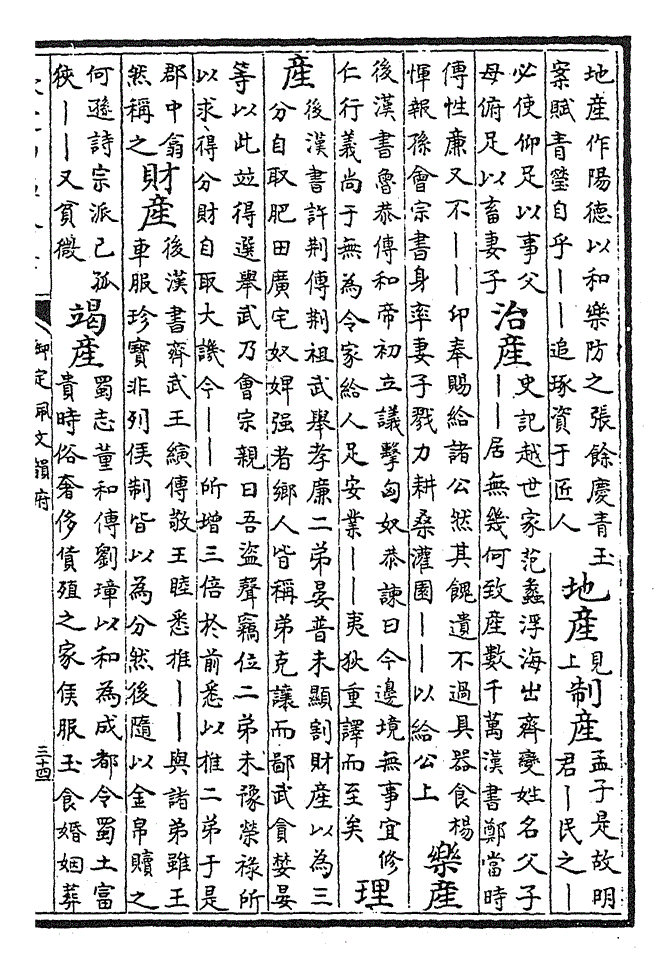 地産作陽德以和樂防之張餘慶青玉
案賦青瑩自乎——追琢資于匠人
地産
見
上
制産
孟子是故明
君—民之—
必使仰足以事父
母俯足以畜妻子
治産
史記越世家范蠡浮海出齊變姓名父子
——居無幾何致産數千萬漢書鄭當時
傳性廉又不——卬奉賜給諸公然其餽遺不過具器食楊
惲報孫會宗書身率妻子戮力耕桑灌園——以給公上
樂産
後漢書魯恭傳和帝初立議擊匈奴恭諫曰今邊境無事宜修
仁行義尚于無為令家給人足安業——夷狄重譯而至矣
理
産
後漢書許荆傳荆祖武舉孝廉二弟晏普未顯割財産以為三
分自取肥田廣宅奴婢强者鄉人皆稱弟克讓而鄙武貪婪晏
等以此竝得選舉武乃會宗親曰吾盜聲竊位二弟未豫榮祿所
以求得分財自取大譏今——所增三倍於前悉以推二弟于是
郡中翕
然稱之
財産
後漢書齊武王縯傳敬王睦悉推——與諸弟雖王
車服珍寶非列侯制皆以為分然後隨以金帛贖之
何遜詩宗派已孤
狹——又貧微
竭産
蜀志董和傳劉璋以和為成都令蜀土富
貴時俗奢侈貨殖之家侯服玉食婚姻葬
御定佩文韻府
三十四